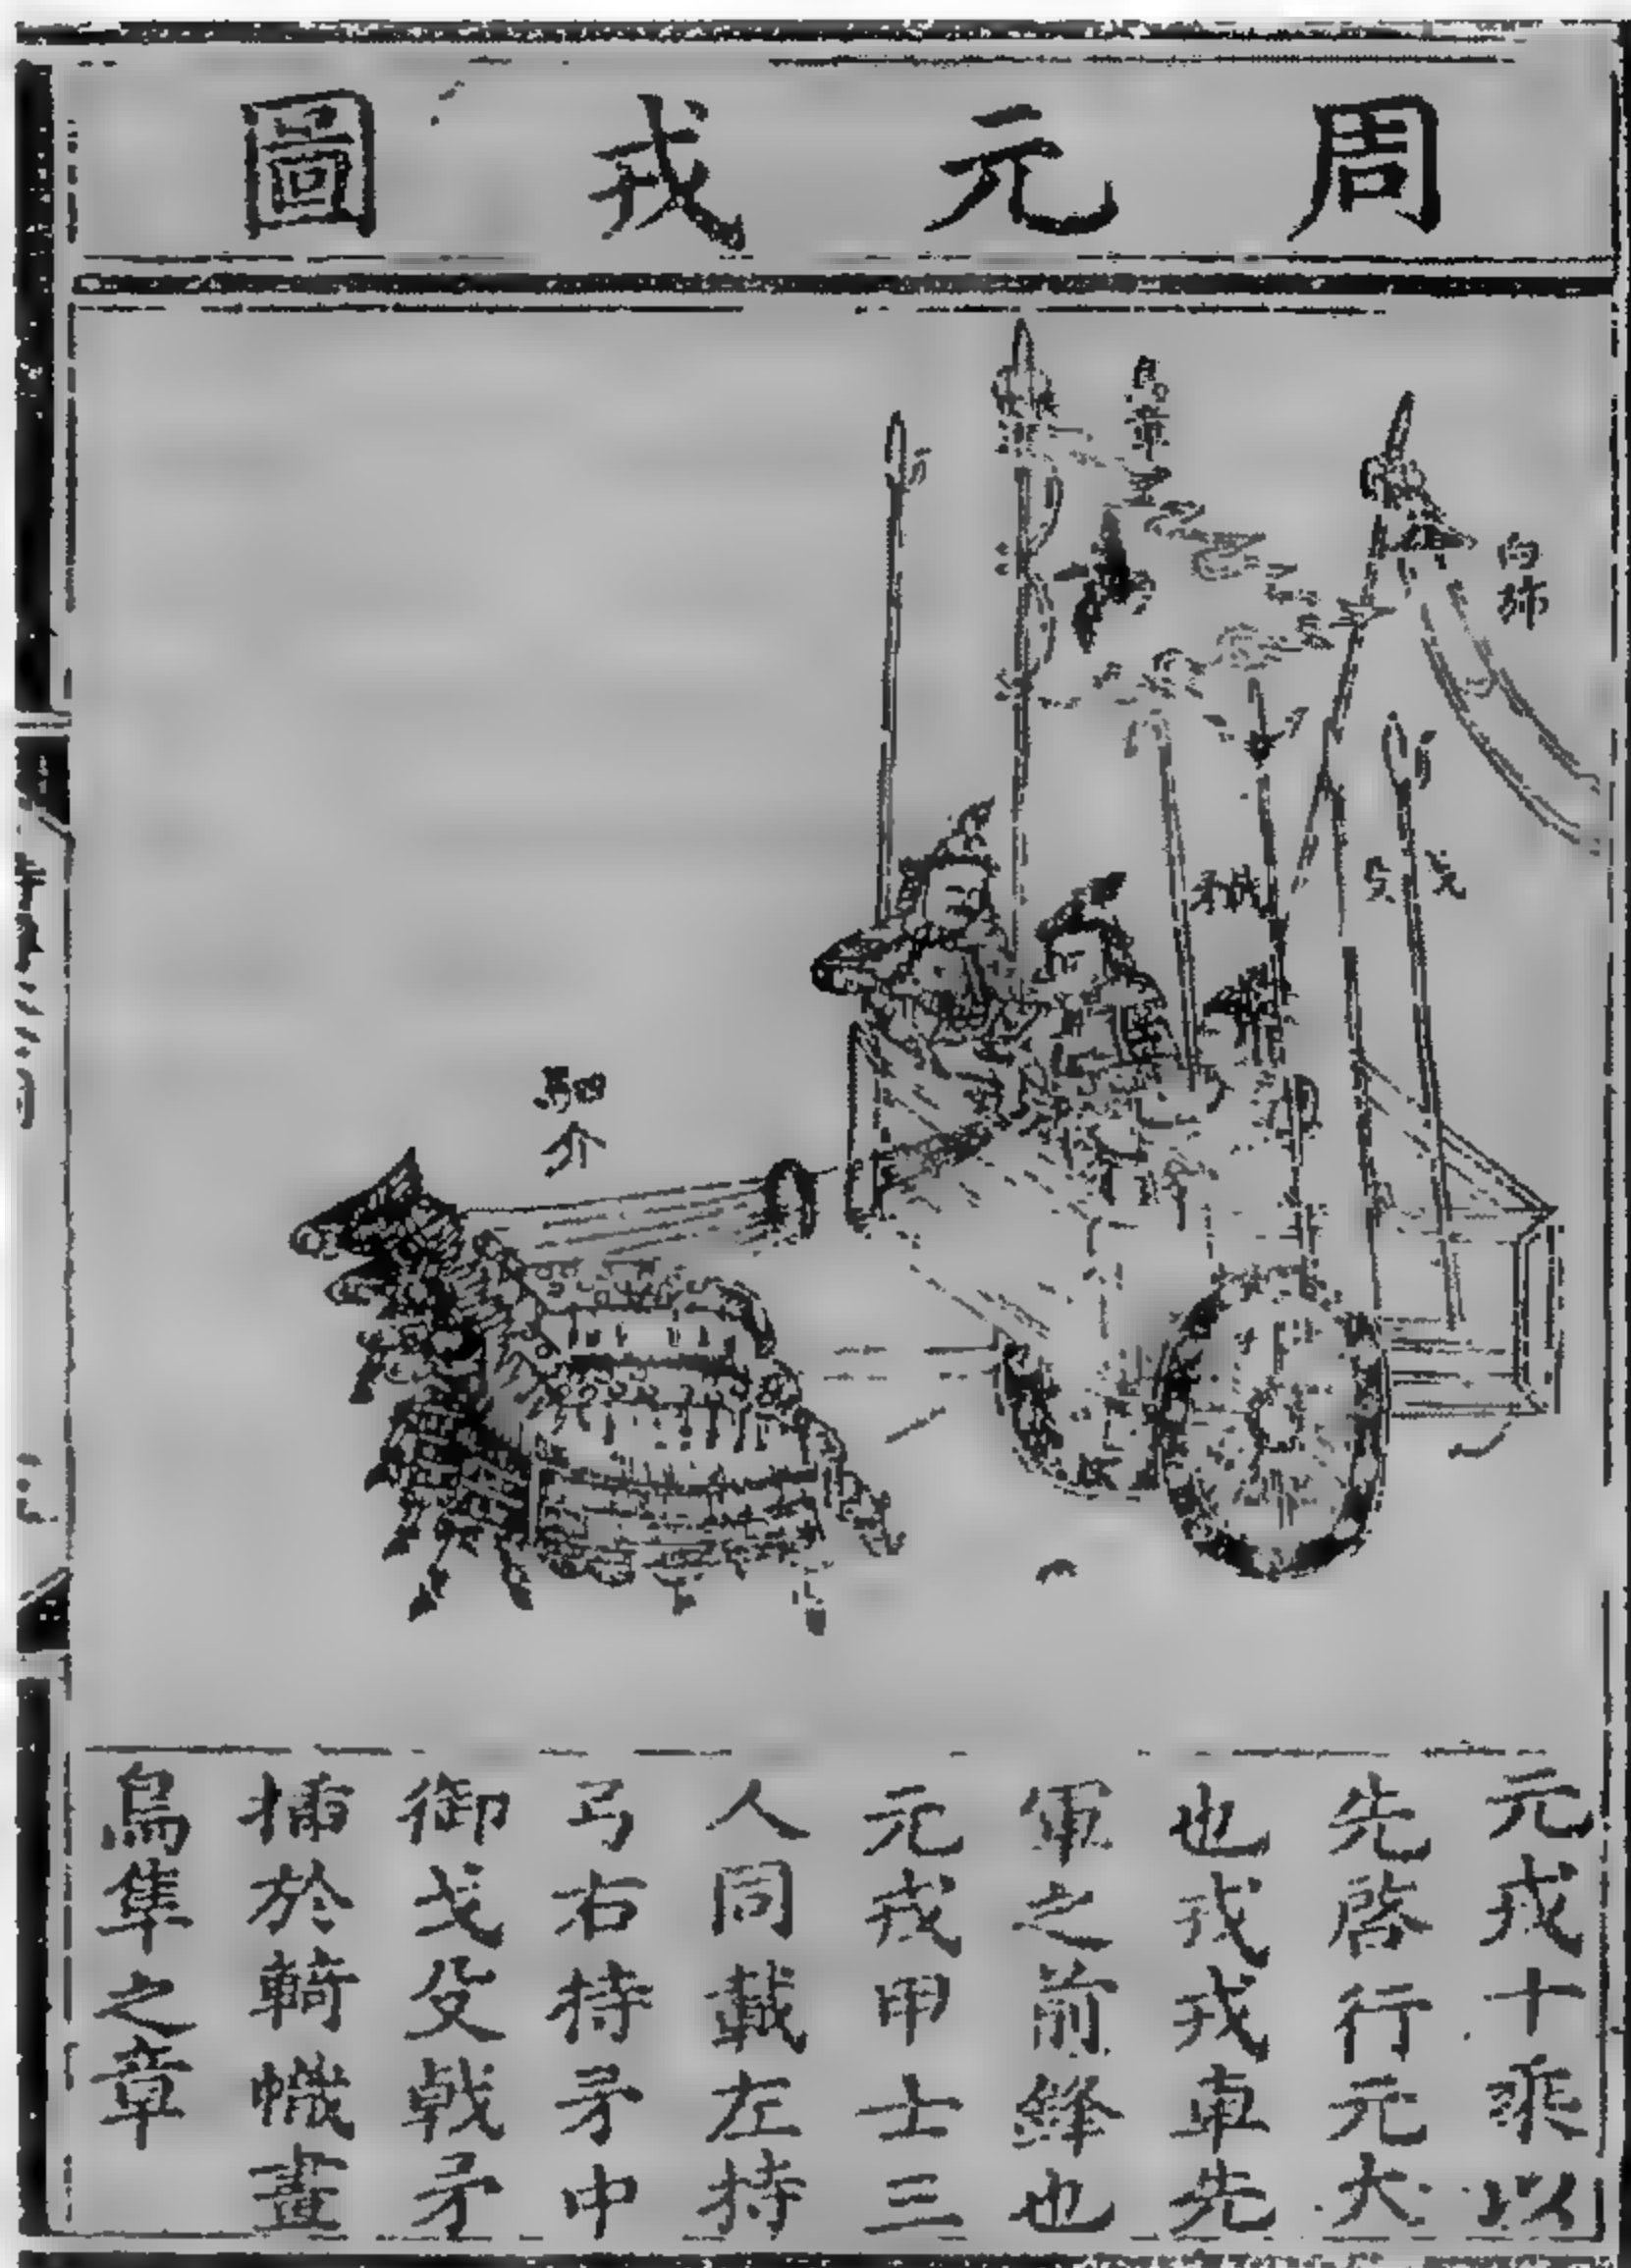 周元戎圖
白斾
四介
駟
元戎十乘以
先啓行元大
也戎戎車先
軍之前鋒也
元戎甲士三
人同載左持
弓右持矛中
御戈殳戟矛
插於輢幟畫
鳥隼之章